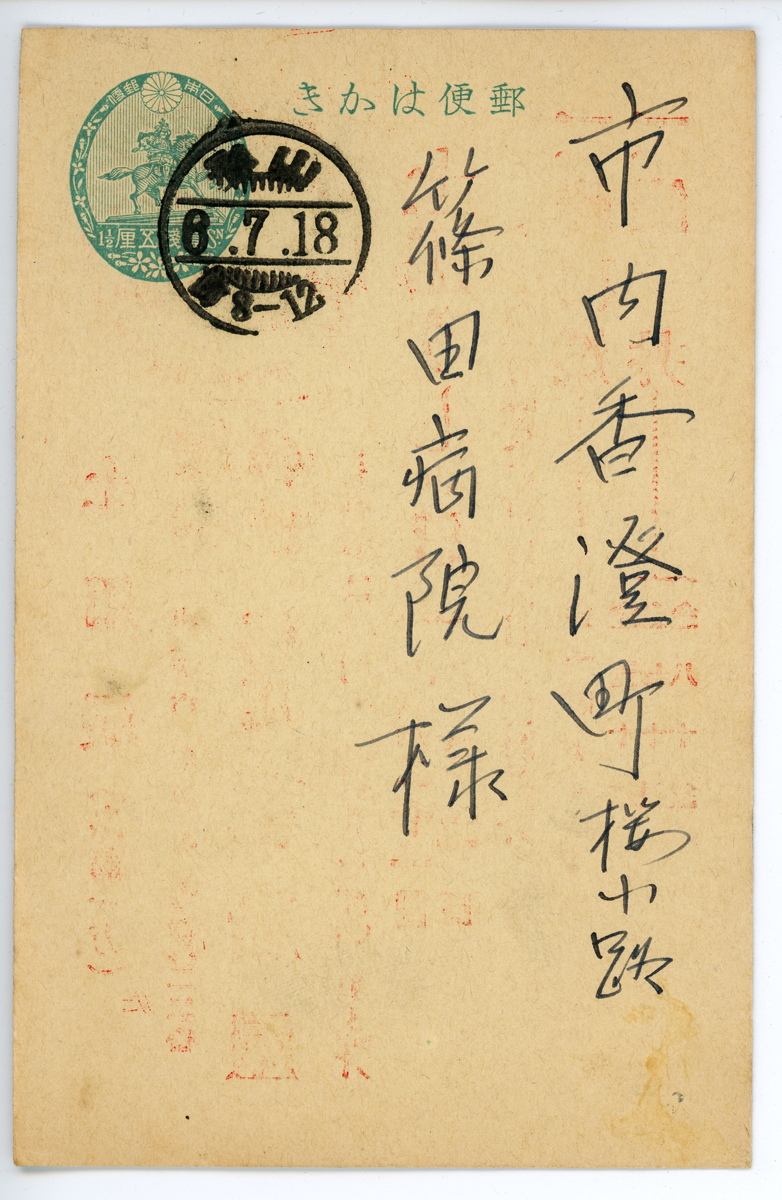 郵便はかき
日本郵便
1½ 錢五厘 SN
6.7.18
8-12
市内香澄町桜小路
篠田病院様